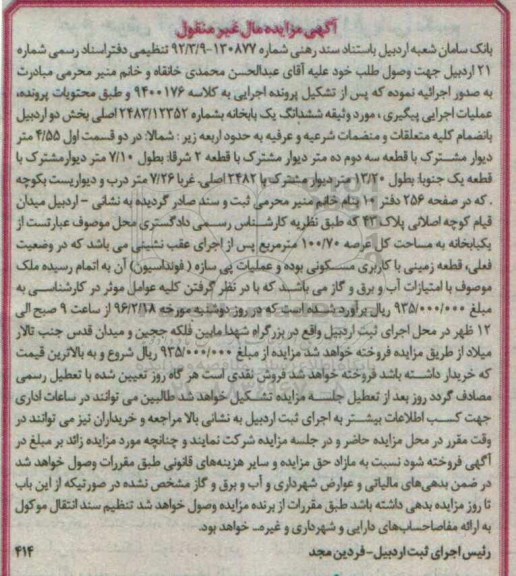 آگهی مزایده مال غیر منقول
بانک سامان شعبه اردبیل باستناد سند رهنی شماره ۱۳۰۸۷۷-۹۲/۳/۹ تنظیمی دفتر اسناد رسمی شماره
۲۱ اردبیل جهت وصول طلب خود علیه آقای عبدالحسن محمدی خانقاه و خانم منیر محرمی مبادرت
به صدور اجرائیه نموده که پس از تشکیل پرونده اجرایی به کلاسه ۹۴۰۰۱۷۶ و طبق محتویات پرونده،
عملیات اجرایی پیگیری، مورد وثیقه ششدانگ یک بابخانه بشماره ۲۴۸۳/۱۲۳۵۲ اصلی بخش دو اردبیل
بانضمام کلیه متعلقات و منضمات شرعیه و عرفیه به حدود اربعه زیر : شمالا: در دو قسمت اول ۴/۵۵ متر
دیوار مشترک با قطعه سه دوم ده متر دیوار مشترک با قطعه ۲ شرقا: بطول ۷/۱۰ متر دیوار مشترک با
قطعه یک جنوبا: بطول ۱۳/۲۰ متر دیوار مشترک با ۲۴۸۲ اصلی. غربا ۷/۲۶ متر درب و دیواریست بکوچه
. که در صفحه ۲۵۶ دفتر ۱۰ بنام خانم منیر محرمی ثبت و سند صادر گردیده به نشانی - اردبیل میدان
قیام کوچه اصلانی پلاک ۴۳ که طبق نظریه کارشناس رسمی دادگستری محل موصوف عبارتست از
یکبابخانه به مساحت کل عرصه ۱۰۰/۷۰ مترمربع پس از اجرای عقب نشینی می باشد که در وضعیت
فعلی، قطعه زمینی با کاربری مسکونی بوده و عملیات پی سازه (فونداسیون) آن به اتمام رسیده ملک
موصوف با امتیازات آب و برق و گاز می باشد که با در نظر گرفتن کلیه عوامل موثر در کارشناسی به
مبلغ ۹۳۵/۰۰۰/۰۰۰ ریال برآورد شده است که در روز دوشنبه مورخه ۹۶/۲/۱۸ از ساعت ۹ صبح الی
۱۲ ظهر در محل اجرای ثبت اردبیل واقع در بزرگراه شهدا مابین فلکه ججین و میدان قدس جنب تالار
میلاد از طریق مزایده فروخته خواهد شد مزایده از مبلغ ۹۳۵/۰۰۰/۰۰۰ ریال شروع و به بالاترین قیمت
که خریدار داشته باشد فروخته خواهد شد فروش نقدی است هر گاه روز تعیین شده با تعطیل رسمی
مصادف گردد روز بعد از تعطیل جلسه مزایده تشکیل خواهد شد طالبین می توانند در ساعات اداری
جهت کسب اطلاعات بیشتر به اجرای ثبت اردبیل به نشانی بالا مراجعه و خریداران نیز می توانند در
وقت مقرر در محل مزایده حاضر و در جلسه مزایده شرکت نمایند و چنانچه مورد مزایده زائد بر مبلغ در
آگهی فروخته شود نسبت به مازاد حق مزایده و سایر هزینه‌های قانونی طبق مقررات وصول خواهد شد
در ضمن بدهی‌های مالیاتی و عوارض شهرداری و آب و برق و گاز مشخص نشده در صورتیکه از این باب
تا روز مزایده بدهی داشته باشد طبق مقررات از برنده مزایده وصول خواهد شد تنظیم سند انتقال موکول
به ارائه مفاصاحساب‌های دارایی و شهرداری و غیره خواهد بود.
رئیس اجرای ثبت اردبیل- فردین مجد ۴۱۴